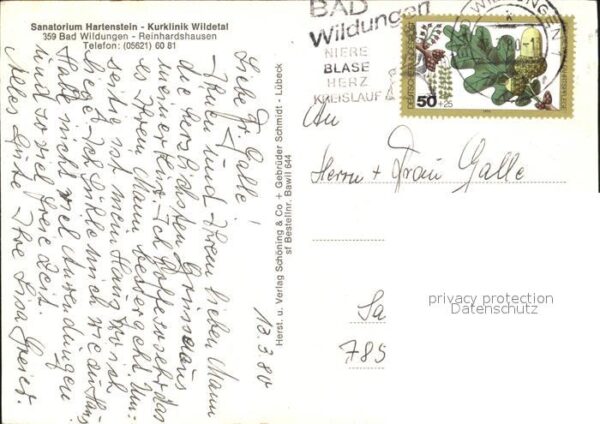 Sanatorium Hartenstein - Kurklinik Wildetal
359 Bad Wildungen - Reinhardshausen
Telefon: (05621) 60 81
13.3.80
Liebe Fr. Galle!
Ihnen und Ihrem lieben Mann
die herzlichsten Grüsse aus
meiner Kur. Ich hoffe sehr das
es Ihrem Mann besser geht. Un-
seitig ist mein Haus wo ich
liege. Ich fühle mich wie zu Haus
Habe nicht viel Anwendungen
und so viel freie Zeit.
Alles Gute Ihre Lisa
Herst. u. Verlag Schöning & Co + Gebrüder Schmidt - Lübeck
sf Bestellnr. Bawil 644
BAD
Wildungen
NIERE
BLASE
HERZ
KREISLAUF
BAD WILDUNGEN 1
DEUTSCHE BUNDESPOST
50+25
WOHLFAHRTSPFLEGE
An
Herrn + Frau Galle
Sa
785
privacy protection
Datenschutz